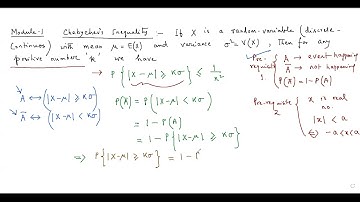 Module-1 Chebychev's Inequality :- If X is a random-variable (discrete-
continuos) with mean μ = E(X) and variance σ² = V(X), Then for any
positive number 'k', we have
→ P{|X-μ| ≥ Kσ} ≤ 1/k²
Pre-requisite 1
A → event happening
Ā → not happening
P(Ā) = 1 - P(A)
A ↔ |X-μ| ≥ Kσ
Ā ↔ |X-μ| < Kσ
P(Ā) = P{|X-μ| < Kσ}
= 1 - P(A)
= 1 - P{|X-μ| ≥ Kσ}
⇒ P{|X-μ| ≥ Kσ} = 1 - P
Pre-requisite 2
x is real no.
|x| < a
⇔ -a<x<a